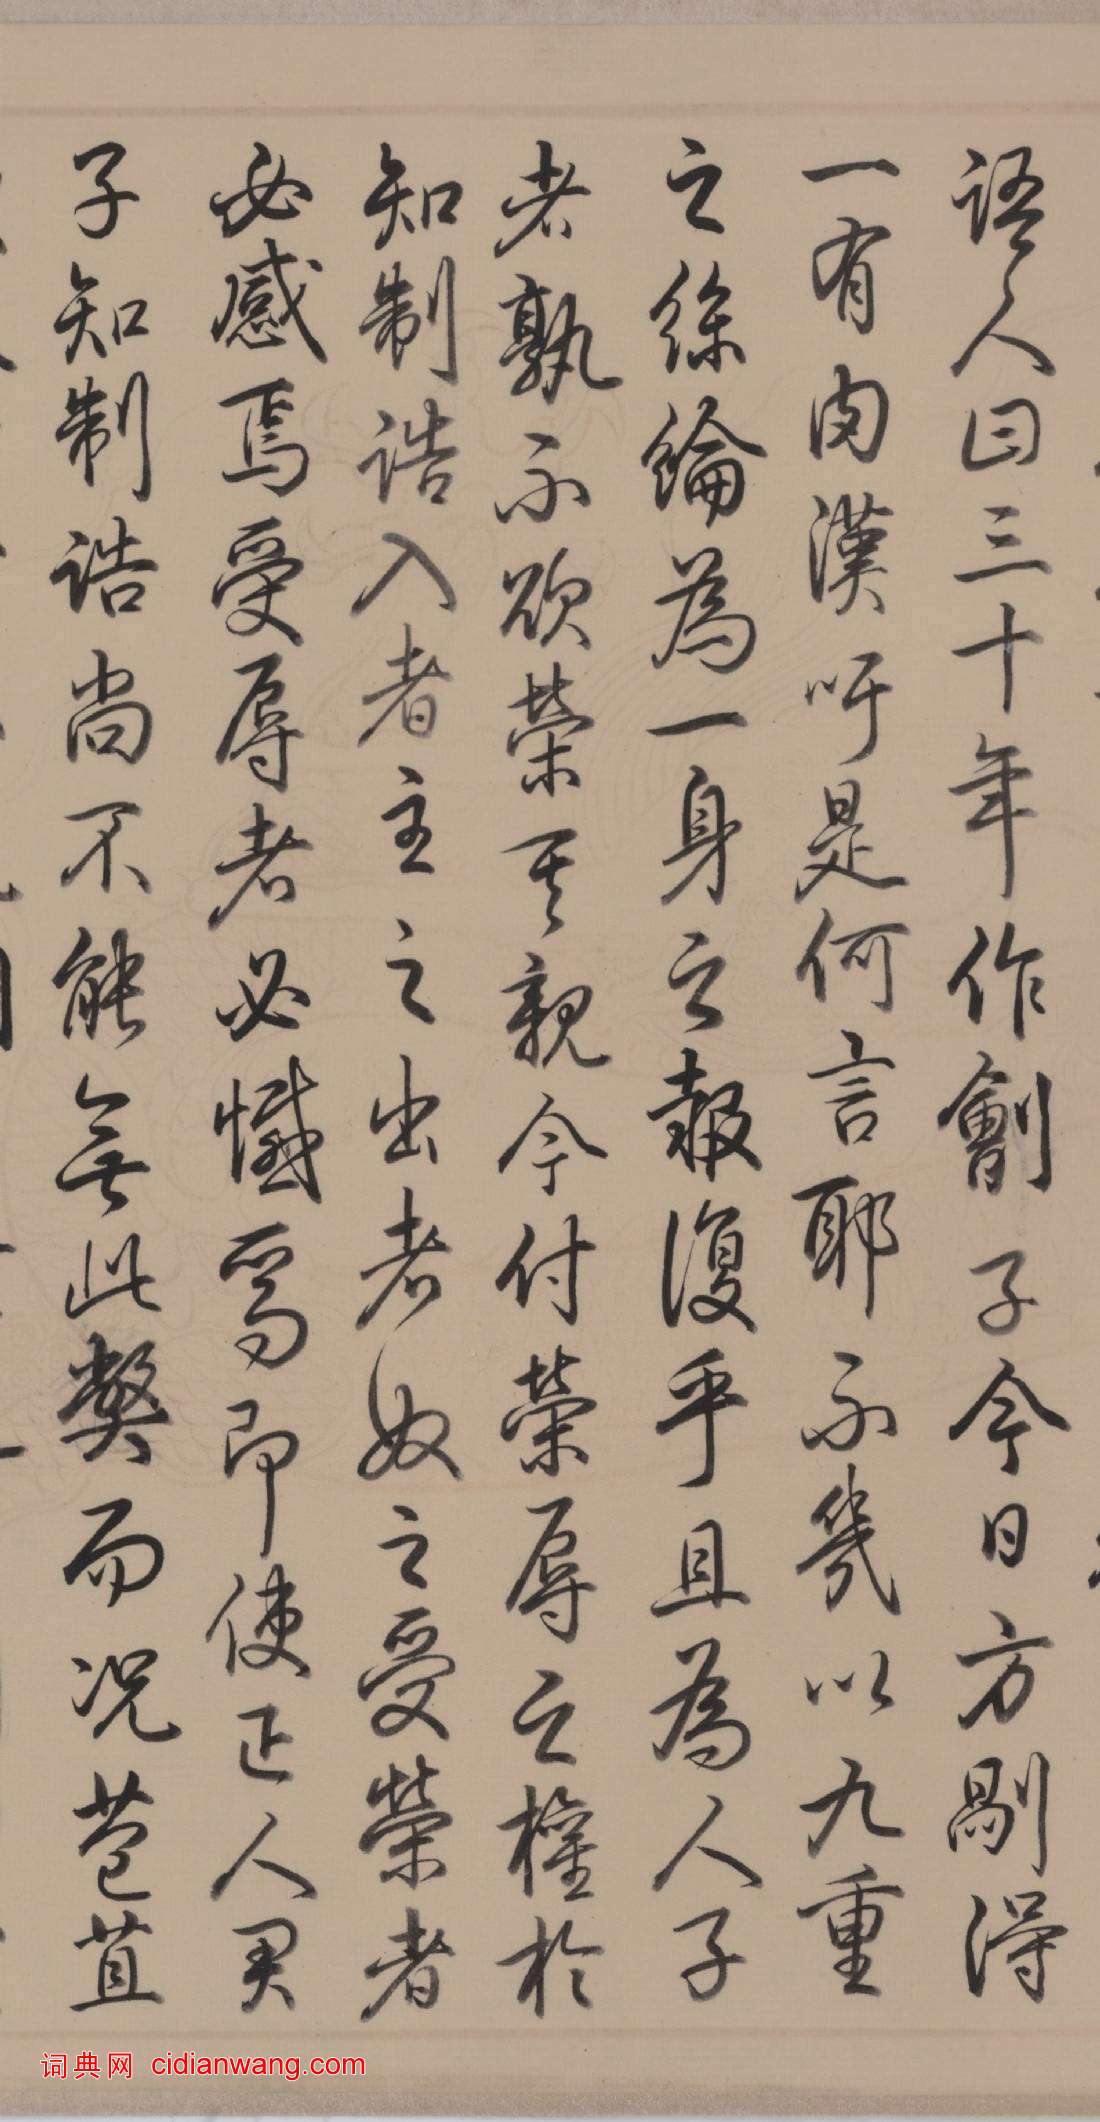 语人曰三十年作劊子今日方剮得
一有肉漢吁是何言耶不幾以九重
之絲綸為一身之報復乎且為人子
者孰不欲榮其親今付榮辱之權於
知制誥入者主之出者奴之受榮者
必感焉受辱者必憾焉即使正人君
子知制誥尚不能無此獘而况苞苴
词典网 cidianwang.com